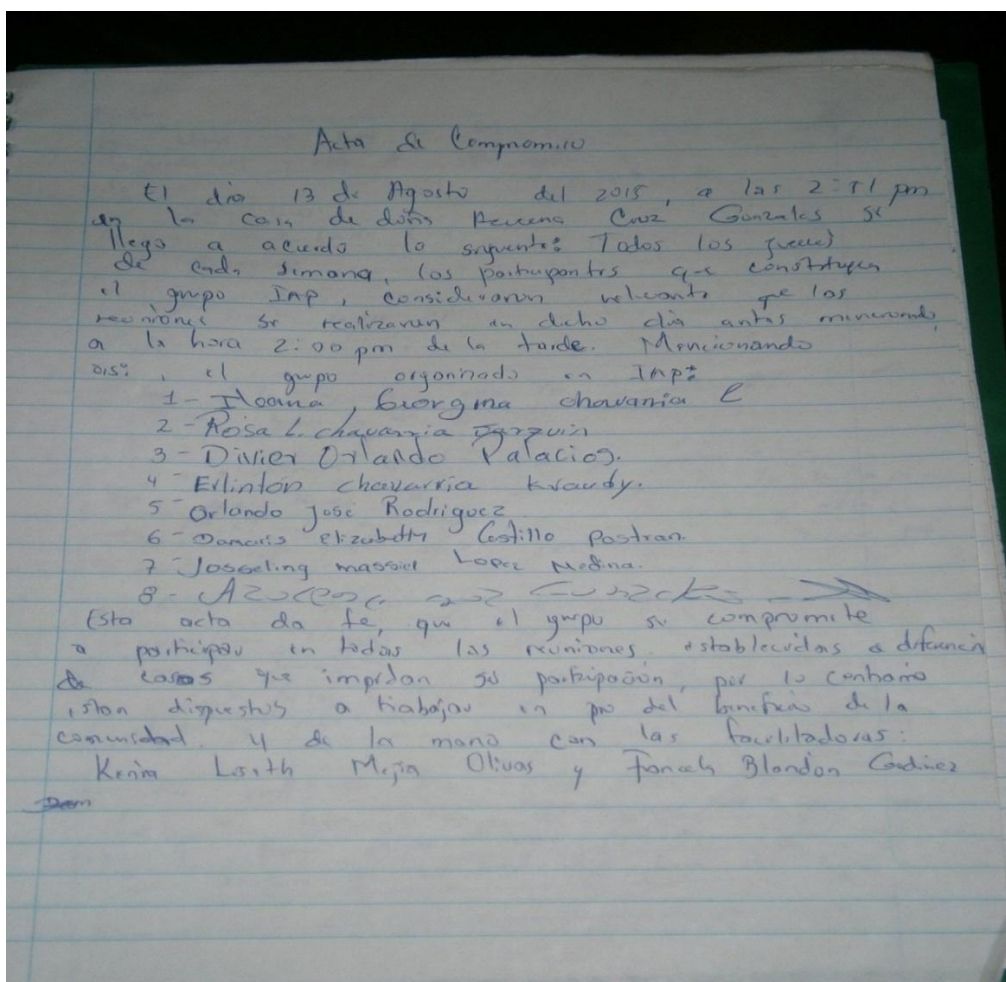 Acta de Compromiso
El dia 13 de Agosto del 2015, a las 2:51 pm
en la casa de doña Cruz Gonzales se
llego a acuerdo lo siguiente: Todos los jueves
de cada semana, los participantes que constituyen
el grupo IAP, consideraron relevante que las
reuniones se realizaran en dicho dia antes mencionado
a la hora 2:00 pm de la tarde. Mencionando
asi, el grupo organizado en IAP:
1- Iloana, Georgina chavarria C
2- Rosa L. chavarria Jarquin
3- Divier Orlando Palacios.
4- Erlinton chavarria Kraudy.
5- Orlando José Rodriguez
6- Damaris elizabeth Castillo Postran.
7- Josseling massiel Lopez Medina.
8- Azucena cruz Gonzales
Esta acta da fe, que el grupo se compromete
a participar en todas las reuniones establecidas a diferencia
de casos que impidan su participación, por lo contrario
estan dispuestos a trabajar en pro del beneficio de la
comunidad y de la mano con las facilitadoras:
Kenia Liseth Mejia Olivas y Blandon